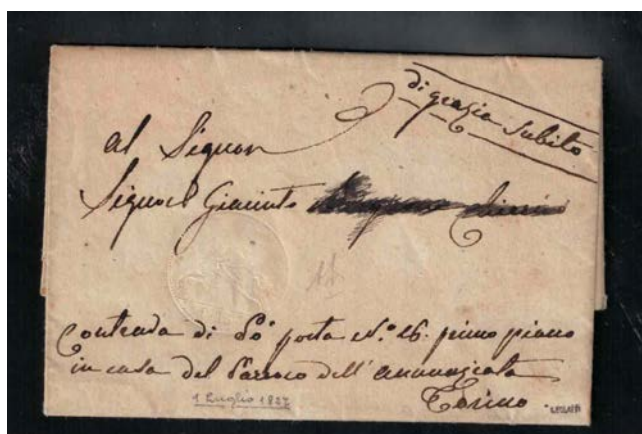 di grazia subito
Al Signor
Signor Giacinto
Contrada di Pò porta N.º 26. primo piano
in casa del Parroco dell'annunziata
Torino
1 Luglio 1827